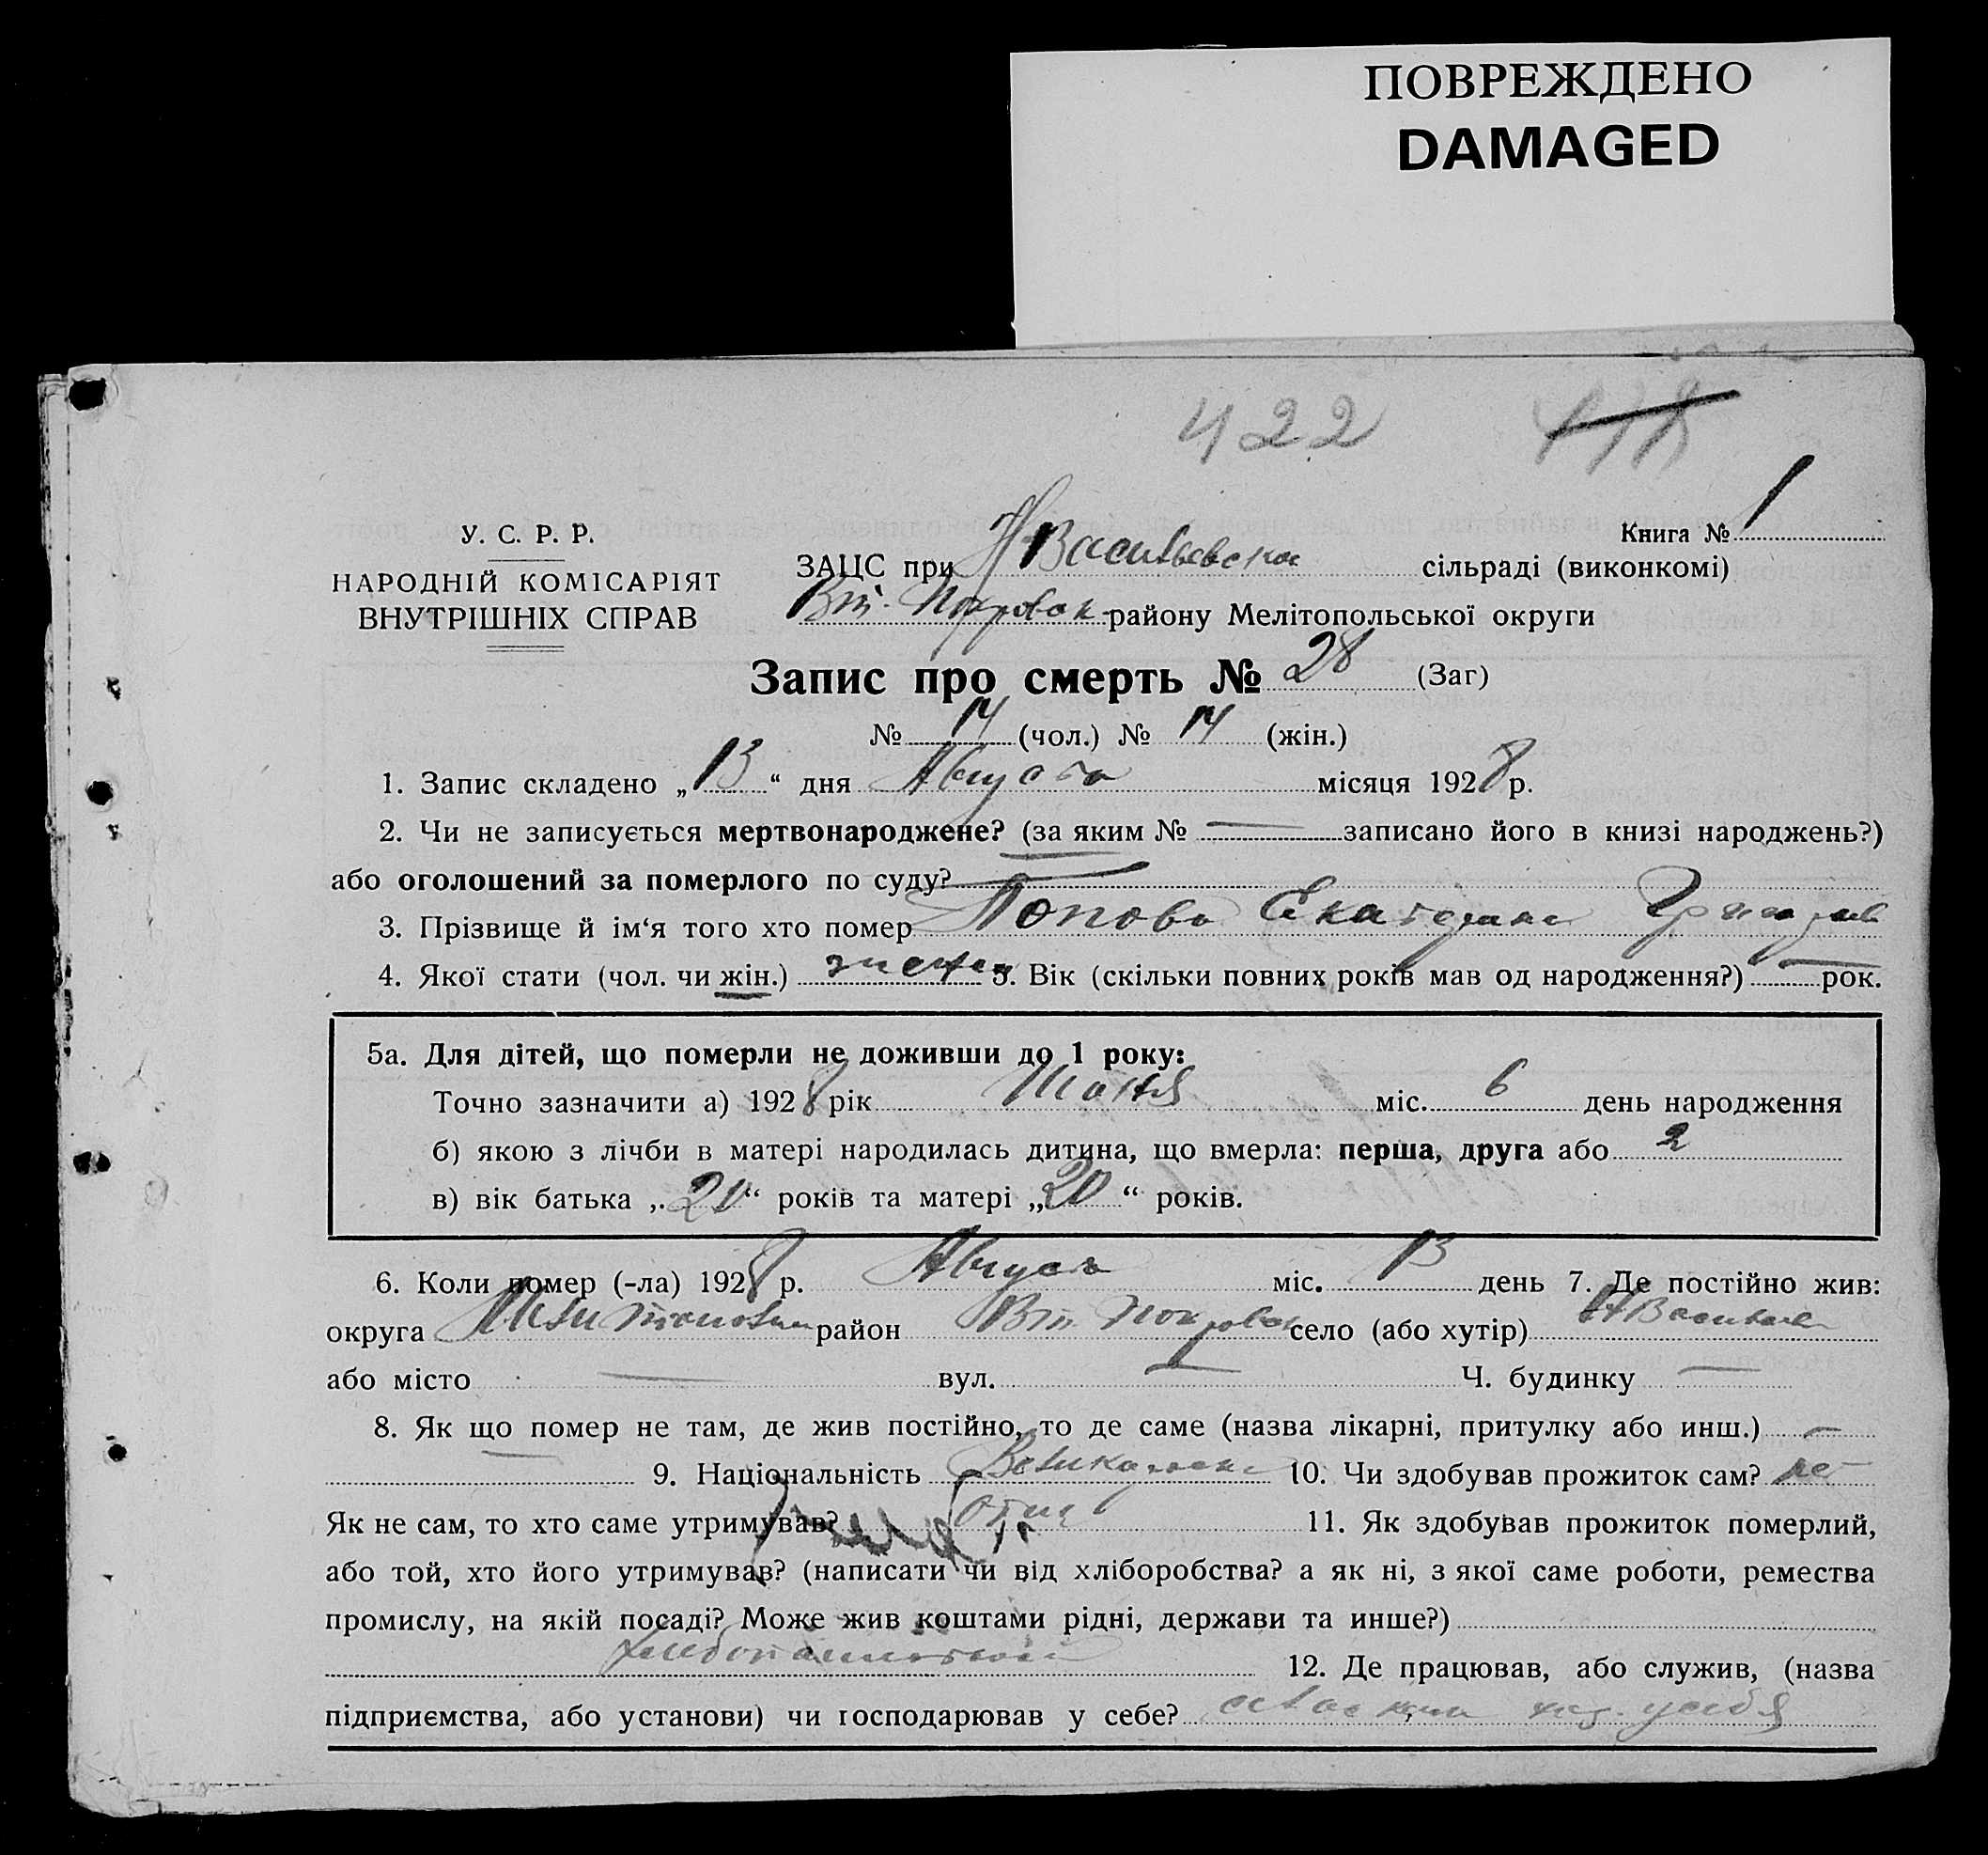 ПОВРЕЖДЕНО
DAMAGED
422
Книга № 1
У. С. Р. Р.
НАРОДНІЙ КОМІСАРІЯТ
ВНУТРІШНІХ СПРАВ
ЗАЦС при Н Васильевска сільраді (виконкомі)
Вт. Покровск району Мелітопольської округи
Запис про смерть № 28 (Заг)
№ 14 (чол.) № 14 (жін.)
1. Запис складено „13“ дня Августа місяця 1928 р.
2. Чи не записується мертвонароджене? (за яким № — записано його в книзі народжень?)
або оголошений за померлого по суду? —
3. Прізвище й ім‘я того хто помер Попова Екатерина
4. Якої стати (чол. чи жін.) женск 5. Вік (скільки повних років мав од народження?) — рок.
5а. Для дітей, що померли не доживши до 1 року:
Точно зазначити а) 1928 рік міс. 6 день народження
б) якою з лічби в матері народилась дитина, що вмерла: перша, друга або 2
в) вік батька „20“ років та матері „20“ років.
6. Коли помер (-ла) 1928 р. Август міс. 13 день 7. Де постійно жив:
округа район Вт. Покровск село (або хутір) Н Васильев
або місто — вул. — Ч. будинку —
8. Як що помер не там, де жив постійно, то де саме (назва лікарні, притулку або инш.) —
— 9. Національність 10. Чи здобував прожиток сам? нет
Як не сам, то хто саме утримував? отец 11. Як здобував прожиток померлий,
або той, хто його утримував? (написати чи від хліборобства? а як ні, з якої саме роботи, ремества
промислу, на якій посаді? Може жив коштами рідні, держави та инше?)
12. Де працював, або служив, (назва
підприємства, або установи) чи господарював у себе? у себя